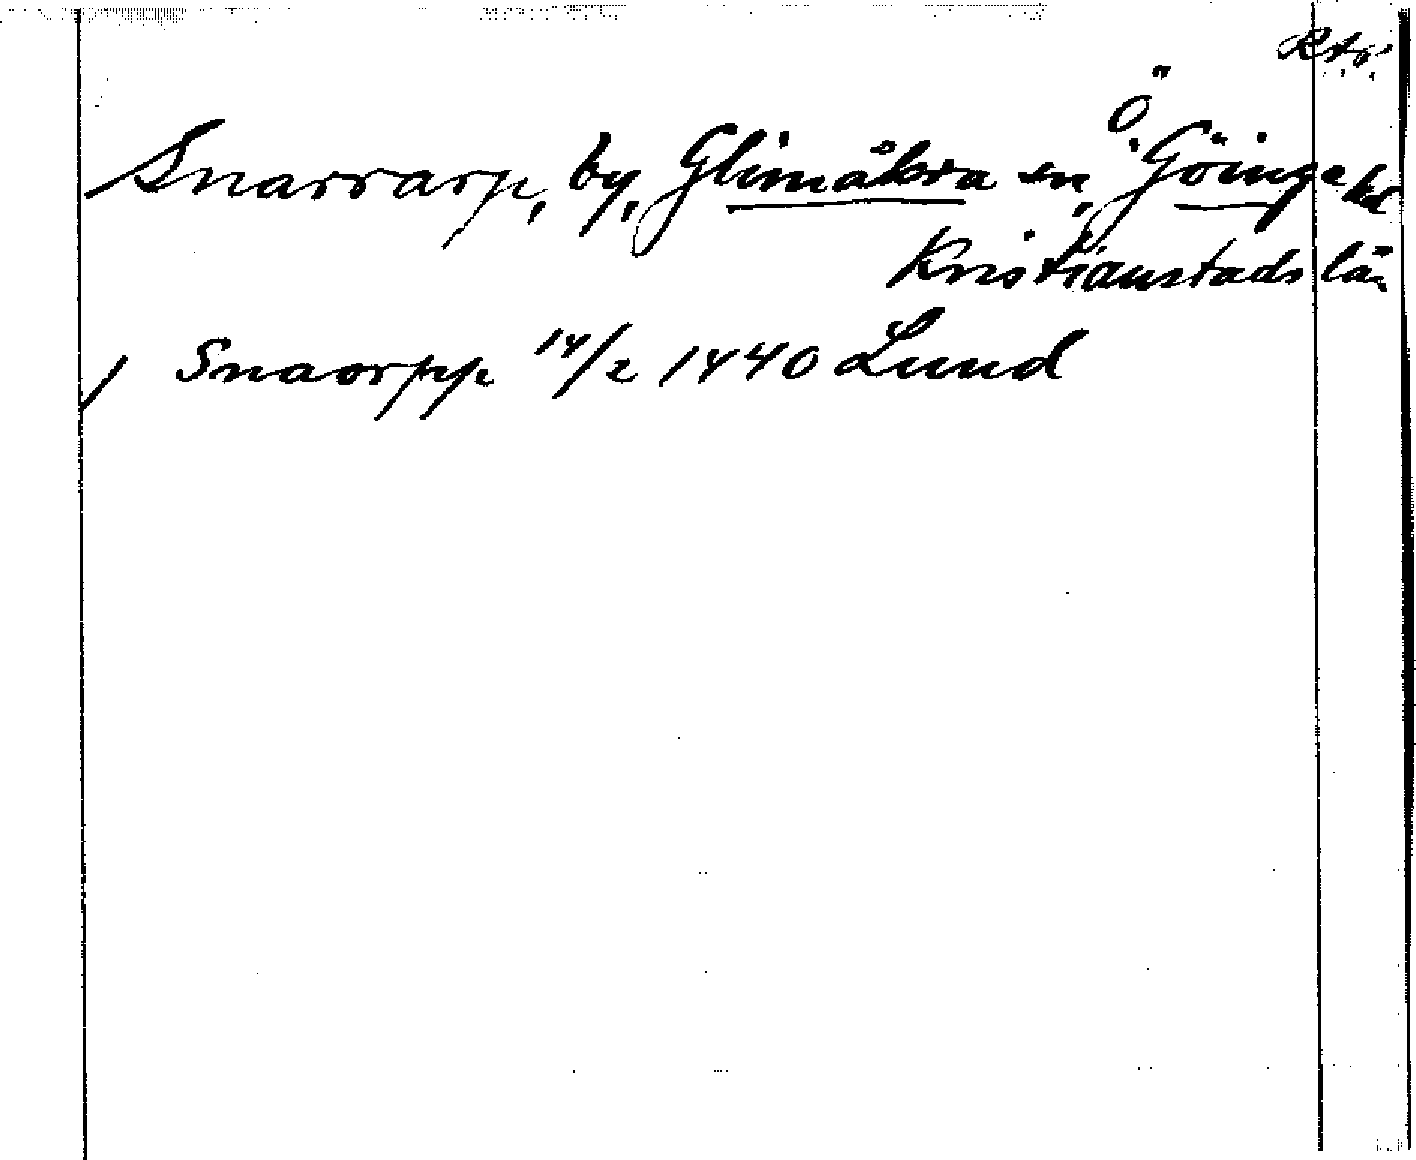 Ktr.
Snararp, by, Glimåkra sn, Ö. Göinge hd
Kristianstads län
1 Snaorpp 14/2 1440 Lund